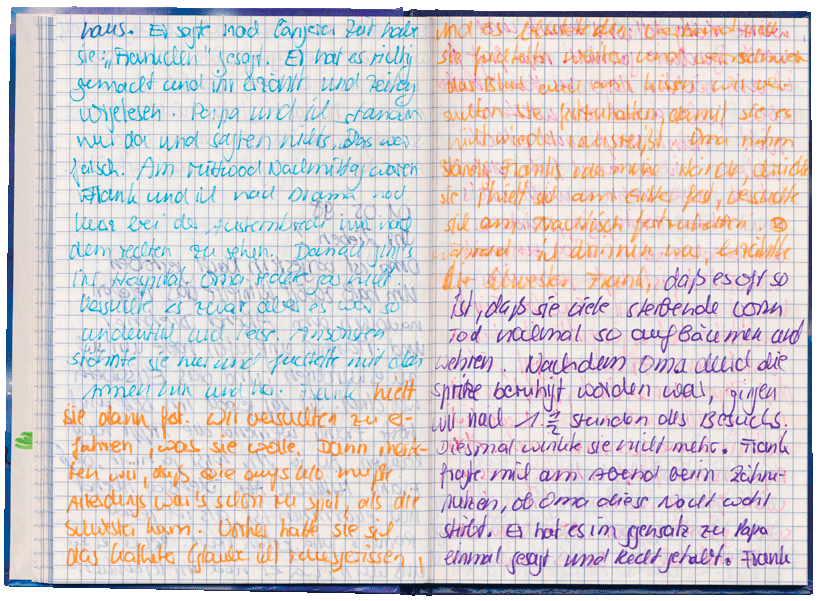 haus. Er sagte nach längerer Zeit habe
sie „Tränchen“ gesagt. Er hat es richtig
gemacht und ihr erzählt und Zeitung
vorgelesen. Papa und ich standen
nur da und sagten nichts. Das war
falsch. Am Mittwoch Nachmittag waren
Frank und ich nach Drama, noch
kurz bei der Austernbrech um nach
dem rechten zu sehen. Danach ging's
ins Hospital. Oma redete gar nicht.
Versuchte es zwar aber es war so
undeutlich und leise. Ansonsten
stöhnte sie nur und fuchtelte mit den
Armen hin und her. Frank hielt
sie dann fest. Wir versuchten zu er-
fahren, was sie wolle. Dann merk-
ten wir, daß sie aufs Klo mußte
Allerdings war's schon zu spät, als die
Schwester kam. Vorher hatte sie sich
das Katheter (glaube ich) rausgerissen,
und es blutete
sie festhalten
das Blut
suchten sie festzuhalten damit sie es
nicht wieder abreißt. Oma nahm
ständig Franks oder meine Hände, drückte
sie, hielt sich am Gitter fest, versuchte
sich am Nachttisch festzuhalten.
Während ich drinnen war, erzählte
die Schwester Frank, daß es oft so
ist, daß sie viele sterbende vorm
Tod nochmal so aufbäumen und
wehren. Nachdem Oma durch die
Spritze beruhigt worden war, gingen
wir nach 1 1/2 Stunden des Besuchs.
Diesmal winkte sie nicht mehr. Frank
fragte mich am Abend beim Zähne-
putzen, ob Oma diese Nacht wohl
stirbt. Er hat es im ggensatz zu Papa
einmal gesagt und Recht gehabt. Frank